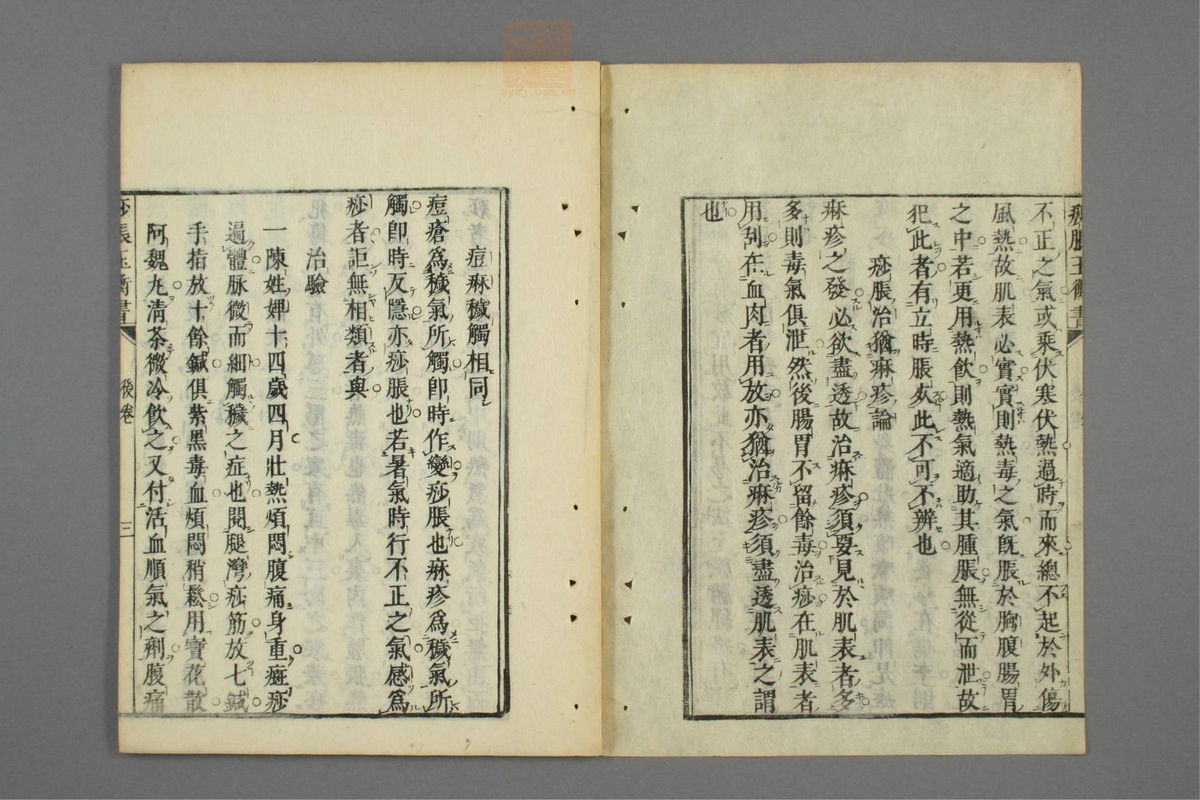 不正之氣或乘伏寒伏熱過時而來總不起於外傷
風熱故肌表必實實則熱毒之氣既脹於胸腹腸胃
之中若更用熱飲則熱氣適助其腫脹無從而泄故
犯此者有立時脹死此不可不辨也
痧脹治猶麻疹論
麻疹之發必欲盡透故治麻疹須要見於肌表者多
多則毒氣俱泄然後腸胃不留餘毒治痧在肌表者
用刮在血肉者用放亦猶治麻疹須盡透肌表之謂
也
痘麻穢觸相同
痘瘡爲穢氣所觸卽時作變痧脹也麻疹爲穢氣所
觸卽時反隱亦痧脹也若暑氣時行不正之氣感爲
痧者詎無相類者與
治驗
一陳姓婢十四歲四月壯熱煩悶腹痛身重斑痧
遍體脉微而細觸穢之症也閱腿灣痧筋放七鍼
手指放十餘鍼俱紫黑毒血煩悶稍鬆用寶花散
阿魏丸淸茶微冷飲之又付活血順氣之劑腹痛
痧脹玉衡書
後卷
三